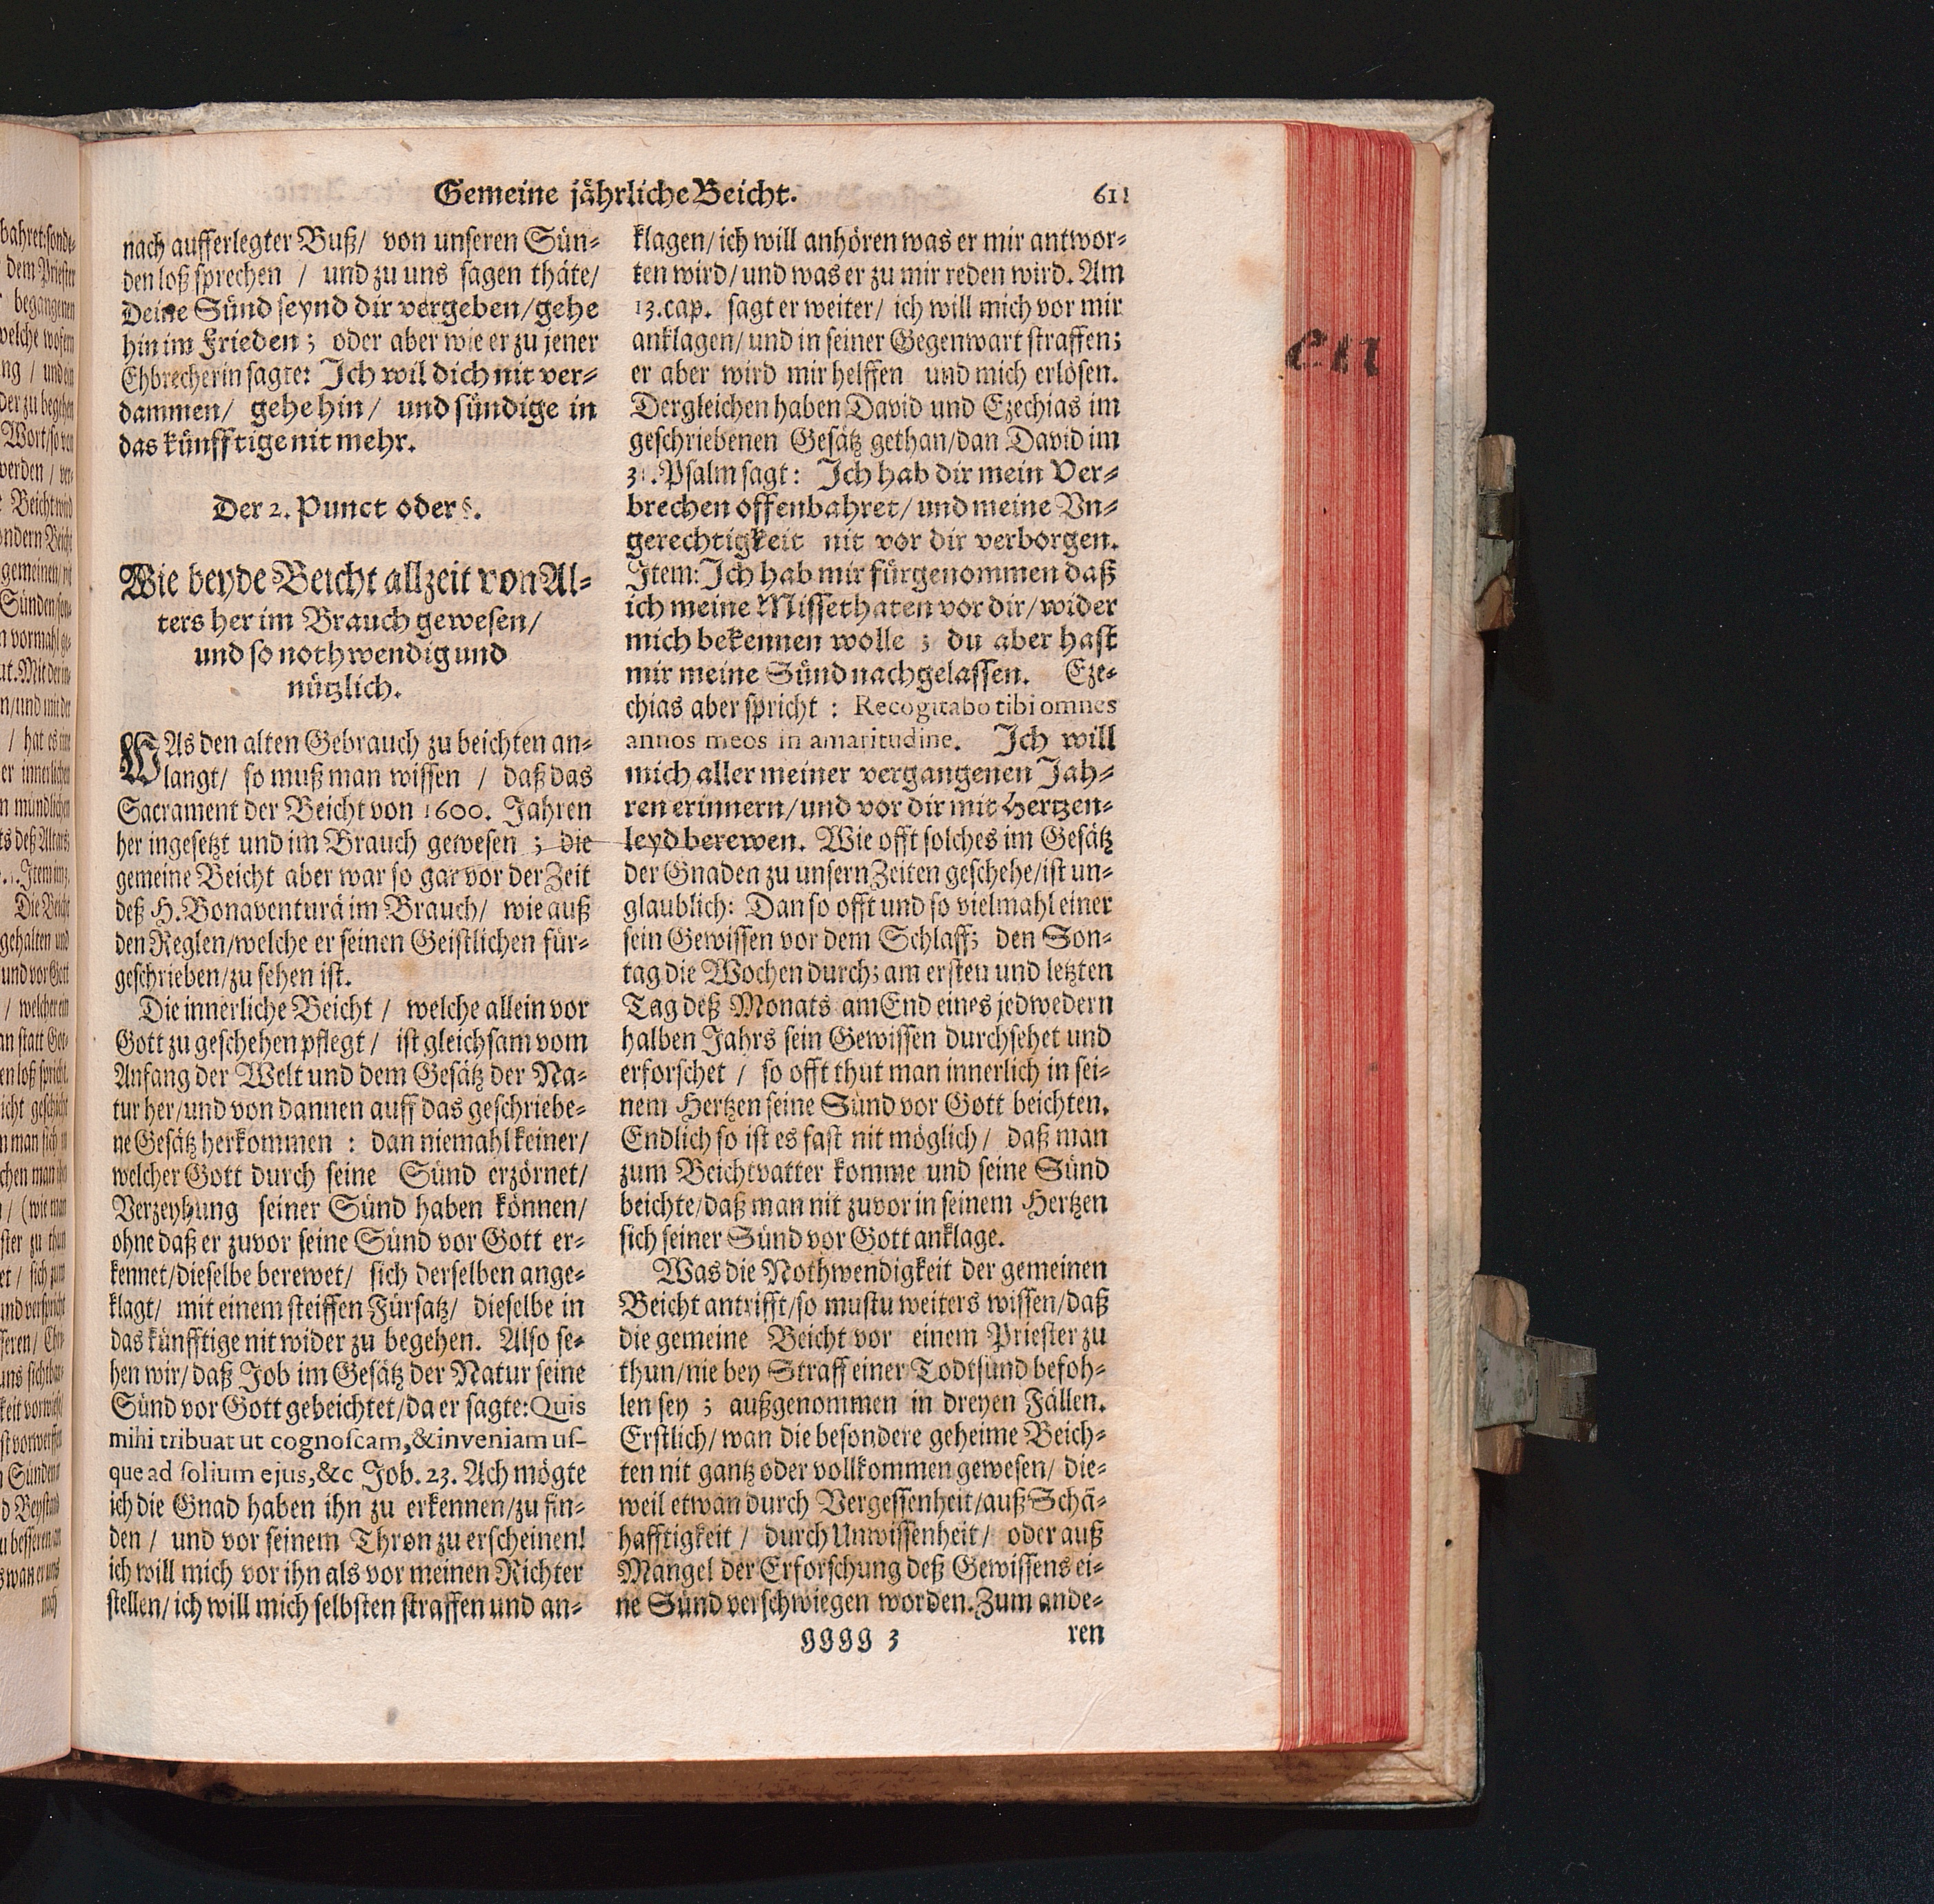 Gemeine jährliche Beicht.
611
nach aufferlegter Buß/ von unseren Sün-
den loß sprechen / und zu uns sagen thäte/
Deine Sünd seynd dir vergeben/gehe
hin im Frieden; oder aber wie er zu jener
Ehbrecherin sagte: Ich wil dich nit ver-
dammen/ gehe hin/ und sündige in
das künfftige nit mehr.
Der 2. Punct oder §.
Wie beyde Beicht allzeit von Al-
ters her im Brauch gewesen/
und so nothwendig und
nützlich.
WAs den alten Gebrauch zu beichten an-
langt/ so muß man wissen / daß das
Sacrament der Beicht von 1600. Jahren
her ingesetzt und im Brauch gewesen ; die
gemeine Beicht aber war so gar vor der Zeit
deß H. Bonaventurä im Brauch/ wie auß
den Reglen/welche er seinen Geistlichen für-
geschrieben/zu sehen ist.
Die innerliche Beicht / welche allein vor
Gott zu geschehen pflegt / ist gleichsam vom
Anfang der Welt und dem Gesätz der Na-
tur her/und von dannen auff das geschriebe-
ne Gesätz herkommen : dan niemahl keiner/
welcher Gott durch seine Sünd erzörnet/
Verzeyhung seiner Sünd haben können/
ohne daß er zuvor seine Sünd vor Gott er-
kennet/dieselbe berewet/ sich derselben ange-
klagt/ mit einem steiffen Fürsatz/ dieselbe in
das künfftige nit wider zu begehen. Also se-
hen wir/daß Job im Gesätz der Natur seine
Sünd vor Gott gebeichtet/da er sagte: Quis
mihi tribuat ut cognoscam, & inveniam us-
que ad solium ejus, &c Job. 23. Ach mögte
ich die Gnad haben ihn zu erkennen/zu fin-
den / und vor seinem Thron zu erscheinen!
ich will mich vor ihn als vor meinen Richter
stellen/ich will mich selbsten straffen und an-
klagen/ich will anhören was er mir antwor-
ten wird/und was er zu mir reden wird. Am
13. cap. sagt er weiter/ ich will mich vor mir
anklagen/und in seiner Gegenwart straffen;
er aber wird mir helffen und mich erlösen.
Dergleichen haben David und Ezechias im
geschriebenen Gesätz gethan/dan David im
31. Psalm sagt: Ich hab dir mein Ver-
brechen offenbahret/und meine Un-
gerechtigkeit nit vor dir verborgen.
Item: Ich hab mir fürgenommen daß
ich meine Missethaten vor dir/wider
mich bekennen wolle ; du aber hast
mir meine Sünd nachgelassen. Eze-
chias aber spricht : Recogitabo tibi omnes
annos meos in amaritudine. Ich will
mich aller meiner vergangenen Jah-
ren erinnern/und vor dir mit Hertzen-
leyd berewen. Wie offt solches im Gesätz
der Gnaden zu unsern Zeiten geschehe/ist un-
glaublich: Dan so offt und so vielmahl einer
sein Gewissen vor dem Schlaff; den Son-
tag die Wochen durch; am ersten und letzten
Tag deß Monats am End eines jedwedern
halben Jahrs sein Gewissen durchsehet und
erforschet / so offt thut man innerlich in sei-
nem Hertzen seine Sünd vor Gott beichten.
Endlich so ist es fast nit möglich / daß man
zum Beichtvatter komme und seine Sünd
beichte/daß man nit zuvor in seinem Hertzen
sich seiner Sünd vor Gott anklage.
Was die Nothwendigkeit der gemeinen
Beicht antrifft/so mustu weiters wissen/daß
die gemeine Beicht vor einem Priester zu
thun/nie bey Straff einer Todtsünd befoh-
len sey ; außgenommen in dreyen Fällen.
Erstlich/wan die besondere geheime Beich-
ten nit gantz oder vollkommen gewesen/ die-
weil etwan durch Vergessenheit/auß Schä-
hafftigkeit / durch Unwissenheit/ oder auß
Mangel der Erforschung deß Gewissens ei-
ne Sünd verschwiegen worden. Zum ande-
gggg 3
ren
en